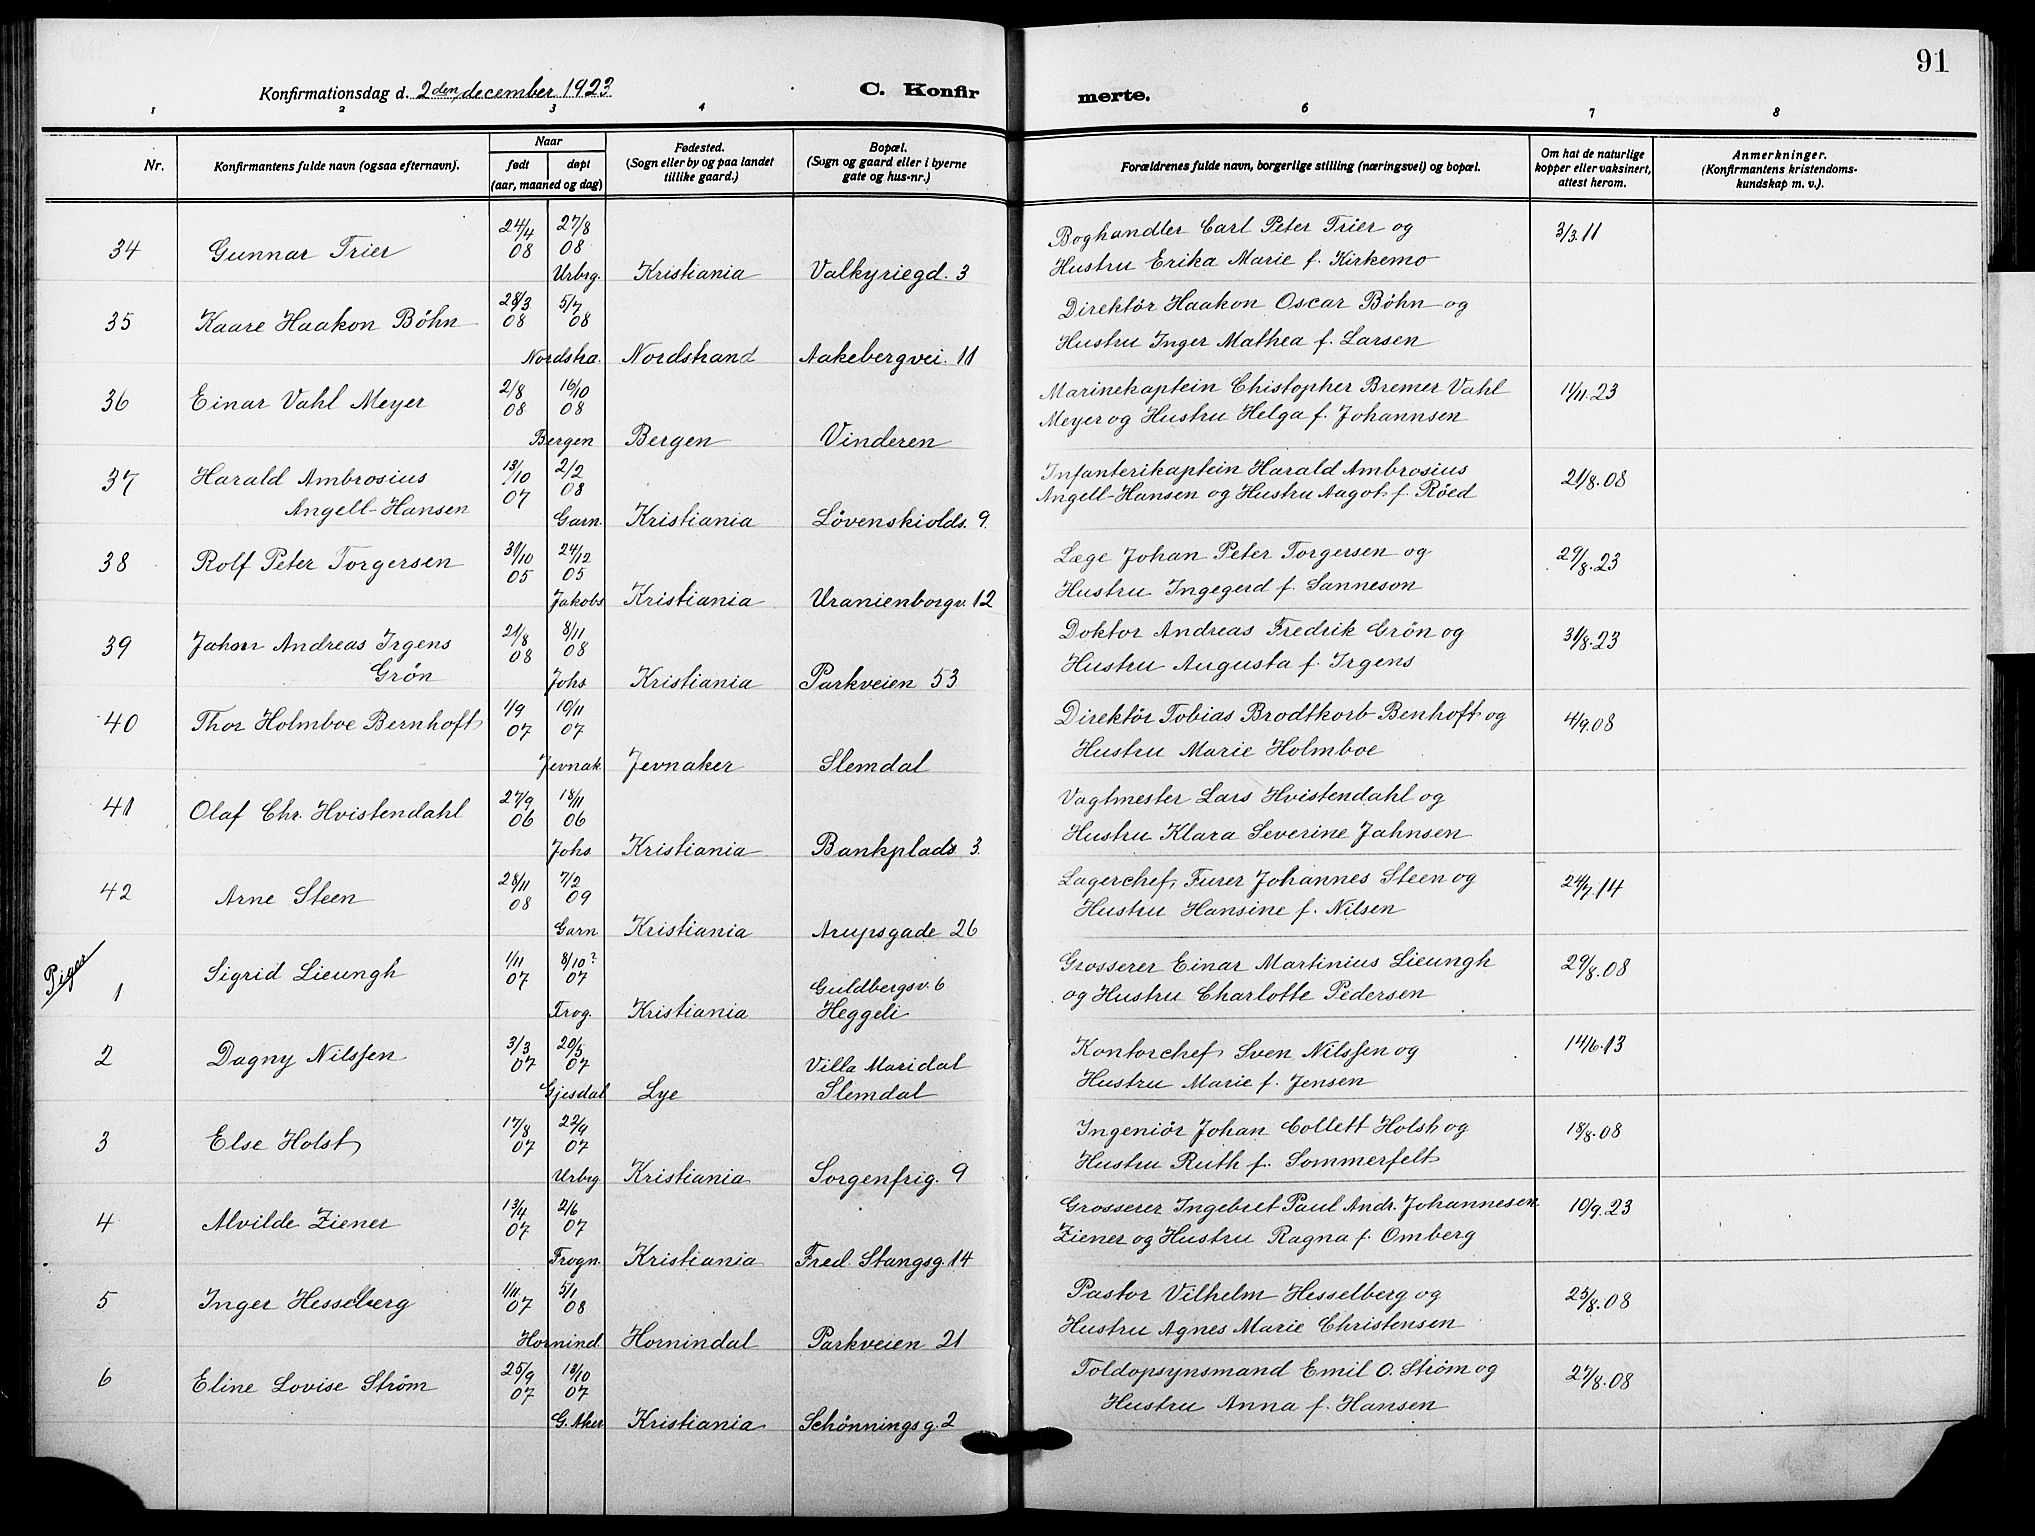 91
Konfirmationsdag d. 2den december 1923
C. Konfir
merte.
1 2 3 4 6 7 8
Nr.
Konfirmantens fulde navn (ogsaa efternavn).
Naar
født døpt
(aar, maaned og dag)
Fødested.
(Sogn eller by og paa landet
tillike gaard.)
Bopæl.
(Sogn og gaard eller i byerne
gate og hus-nr.)
Forældrenes fulde navn, borgerlige stilling (næringsvei) og bopæl.
Om hat de naturlige
kopper eller vaksinert,
attest herom.
Anmerkninger.
(Konfirmantens kristendoms-
kundskap m. v.).
34 Gunnar Trier 24/4 08 27/8 08
Urbrg. Kristiania Valkyriegd. 3
Boghandler Carl Peter Trier og 3/3.11
Hustru Erika Marie f. Kirkemo
35 Kaare Haakon Böhn 28/3 08 5/7 08
Nordstra. Nordstrand Aakebergvei. 11
Direktör Haakon Oscar Böhn og
Hustru Inger Mathea f. Larsen
36 Einar Vahl Meyer 2/8 08 16/10 08
Bergen Bergen Vinderen
Marinekaptein Chistopher Bremer Vahl 11/11.23
Meyer og Hustru Helga f. Johannsen
37 Harald Ambrosius 13/10 07 2/2 08
Angell-Hansen
Garn. Kristiania Lövenskiolds. 9.
Infanterikaptein Harald Ambrosius 21/8.08
Angell-Hansen og Hustru Aagot f. Röed
38 Rolf Peter Torgersen 31/10 05 24/12 05
Jakobs Kristiania Uranienborgv. 12
Læge Johan Peter Torgersen og 29/8.23
Hustru Ingegerd f. Sanneson
39 Johan Andreas Irgens 21/8 08 8/11 08
Grön
Johs Kristiania Parkveien 53
Doktor Andreas Fredrik Grön og 31/8.23
Hustru Augusta f. Irgens
40 Thor Holmboe Bernhoft 1/9 07 10/11 07
Jevnak. Jevnaker Slemdal
Direktör Tobias Brodtkorb Benhoft og 4/9.08
Hustru Marie Holmboe
41 Olaf Chr. Hvistendahl 27/9 06 18/11 06
Johs Kristiania Bankplads. 3.
Vagtmester Lars Hvistendahl og
Hustru Klara Severine Jahnsen
42 Arne Steen 28/11 08 7/2 09
Garn Kristiania Arupsgade 26
Lagerchef, Furer Johannes Steen og 24/7.14
Hustru Hansine f. Nilsen
Piger
1 Sigrid Lieungh 1/11 07 8/10? 07
Guldbergsv. 6
Frog. Kristiania Heggeli
Grosserer Einar Martinius Lieungh 29/8.08
og Hustru Charlotte Pedersen
2 Dagny Nilssen 3/3 07 20/5 07
Villa Maridal
Gjesdal Lye Slemdal
Kontorchef Sven Nilssen og 14/6.13
Hustru Marie f. Jensen
3 Else Holst 17/8 07 22/9 07
Urbrg Kristiania Sorgenfrig. 9
Ingeniör Johan Collett Holst og 18/8.08
Hustru Ruth f. Sommerfelt
4 Alvilde Ziener 13/4 07 2/6 07
Frogn. Kristiania Fred. Stangsg. 14
Grosserer Ingebret Paul Andr. Johannesen 10/9.23
Ziener og Hustru Ragna f. Omberg
5 Inger Hesselberg 1/11 07 5/1 08
Hornind. Hornindal Parkveien 21
Pastor Vilhelm Hesselberg og 25/8.08
Hustru Agnes Marie Christensen
6 Eline Lovise Ström 25/9 07 13/10 07
G. Aker Kristiania Schönningsg. 2
Toldopsynsmand Emil O. Ström og 27/8.08
Hustru Anna f. Hansen